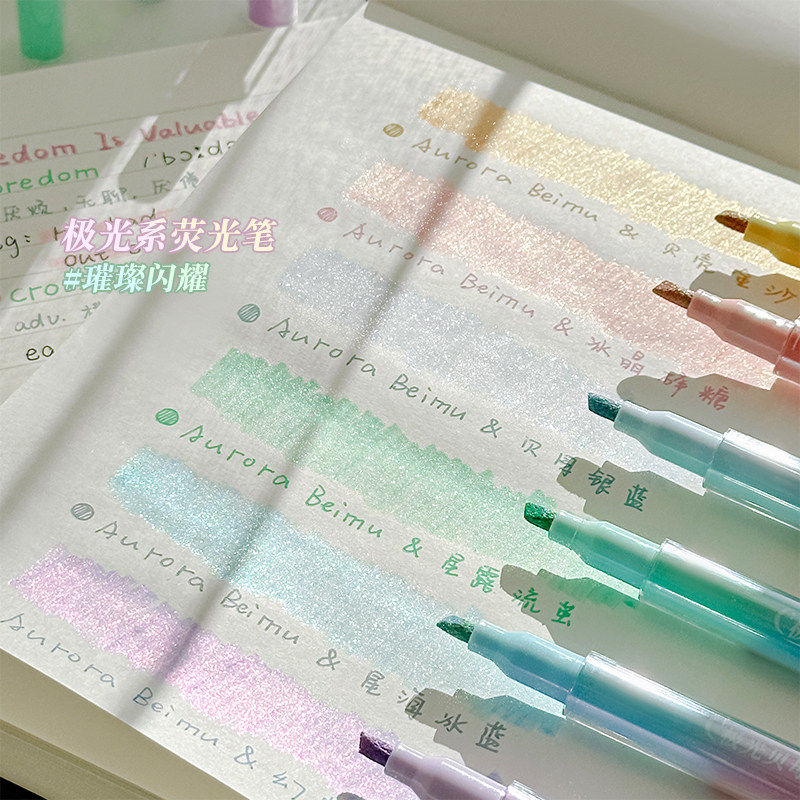 edom Is Valuable
oredom /'bɔ:də
厌烦,无聊,厌倦
g:
out
cro
adv.
ea
极光系荧光笔
#璀璨闪耀
Aurora Beimu & 贝壳金沙
Aurora Beimu & 冰晶砂糖
Aurora Beimu & 贝母银蓝
Aurora Beimu & 星露流萤
Aurora Beimu & 星海冰蓝
Aurora Beimu & 幻
极光贝母